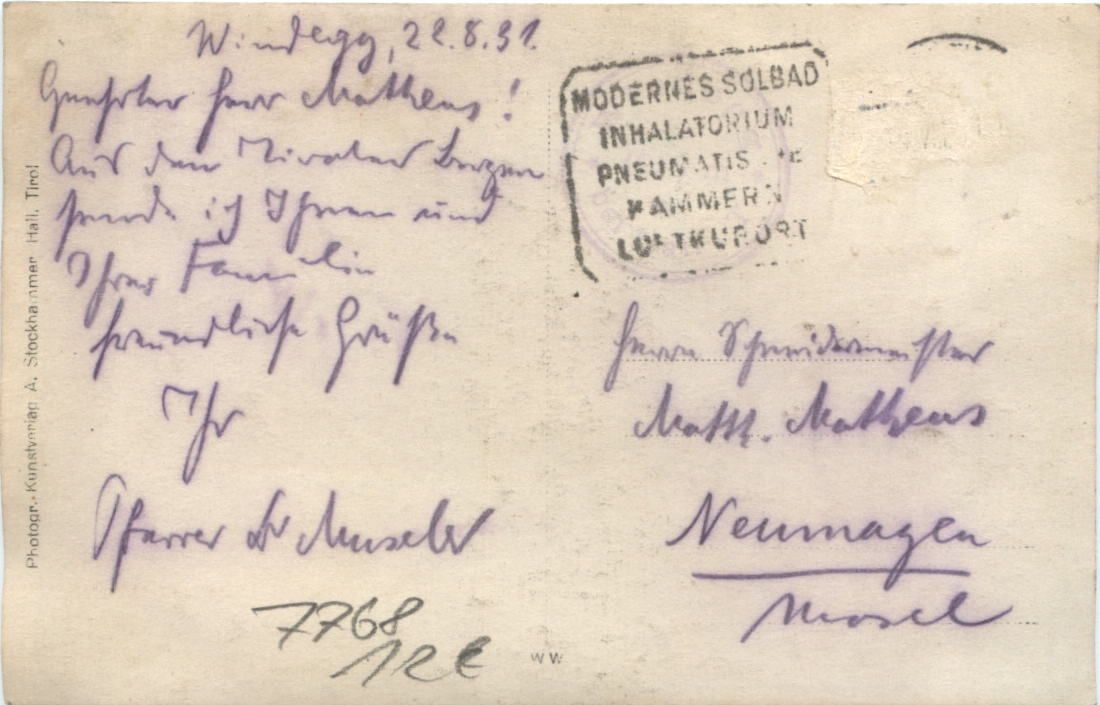 Windegg, 22.8.31.
Geehrter Herr Matheus!
Aus den Tiroler Bergen
sende ich Ihnen und
Ihrer Familie
freundliche Grüße
Ihr
Pfarrer Dr
MODERNES SOLBAD
INHALATORIUM
PNEUMATIS
KAMMERN
LUFTKURORT
Herrn Schneidermeister
Matth. Matheus
Neumagen
Mosel
Photogr. Kunstverlag A. Stockhammer Hall, Tirol
7768
12 €
WW